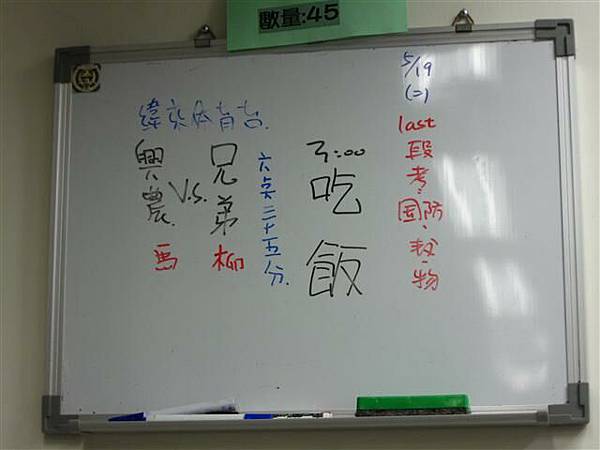 數量:45
5/19
(二)
last
段考
国防、数、物
3:00
吃飯
緯來体育台
六点三十五分
兄弟 V.S. 興農
柳
馬